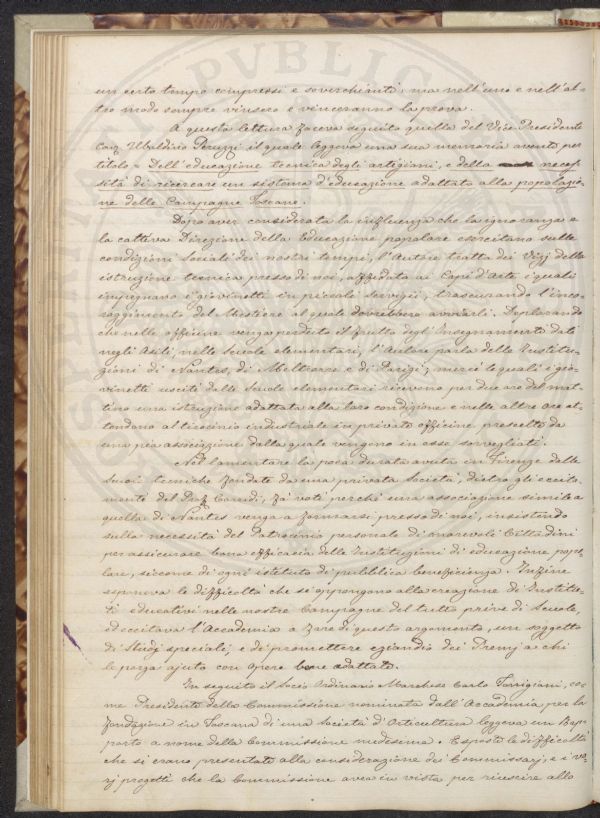 un certo tempo compressi e soverchianti; ma nell'uno e nell'al-
tro modo sempre vinsero e vinceranno la prova.
A questa lettura faceva seguito quella del Vice Presidente
Cav. Ubaldino Peruzzi il quale leggeva una sua memoria avente per
titolo = Dell'educazione tecnica degli artigiani, e della neces-
sità di ricercare un sistema d'educazione adattata alla popolazio-
ne delle Campagne Toscane.
Dopo aver considerata la influenza che la ignoranza e
la cattiva Direzione della Educazione popolare esercitano sulle
condizioni Sociali dei nostri tempi, l'Autore tratta dei Vizj della
istruzione tecnica presso di noi, affidata ai Capi d'Arte i quali
impegnano i giovinetti in piccoli servigii, trascurando l'inco-
raggimento del Mestiere al quale dovrebbero avviarli. Deplorando
che nelle officine venga perduto il frutto degli Insegnamenti dati
negli Asili, nelle Scuole elementari, l'Autore parla delle Institu-
zioni di Nantes, di e di Parigi; mercè le quali i gio-
vinetti usciti dalle Scuole elementari ricevono per due ore del mat-
tino una istruzione adattata alla loro condizione e nelle altre ore at-
tendono al tirocinio industriale in private officine prescelte da
una pia associazione dalla quale vengono in esse sorvegliati.
Nel lamentare la poca durata avuta in Firenze dalle
Scuole tecniche fondate da una privata Società, dietro gli eccita-
menti del Prof. Corridi, fa voti perchè una associazione simile a
quella di Nantes venga a formarsi presso di noi, insistendo
sulla necessità del Patrocinio personale di amorevoli Cittadini
per assicurare buona efficacia delle Instituzioni di educazione popo-
lare, siccome di ogni istituto di pubblica beneficienza. Infine
esponeva le difficoltà che si oppongono alla creazione de' Institu-
ti educativi nelle nostre Campagne del tutto prive di Scuole,
ed eccitava l'Accademia a fare di questo argomento, un soggetto
di Studj speciali, e di promettere eziandio dei Premj a chi
le porga ajuto con opere bene adattate.
In seguito il Socio Ordinario Marchese Carlo Torrigiani, co-
me Presidente della Commissione nominata dall'Accademia per la
fondazione in Toscana di una Società d'Orticultura leggeva un Rap-
porto a nome della Commissione medesima. Esposte le difficoltà
che si erano presentate alla considerazione dei Commissarj, e i va-
rj progetti che la Commissione avea in vista per riuscire allo